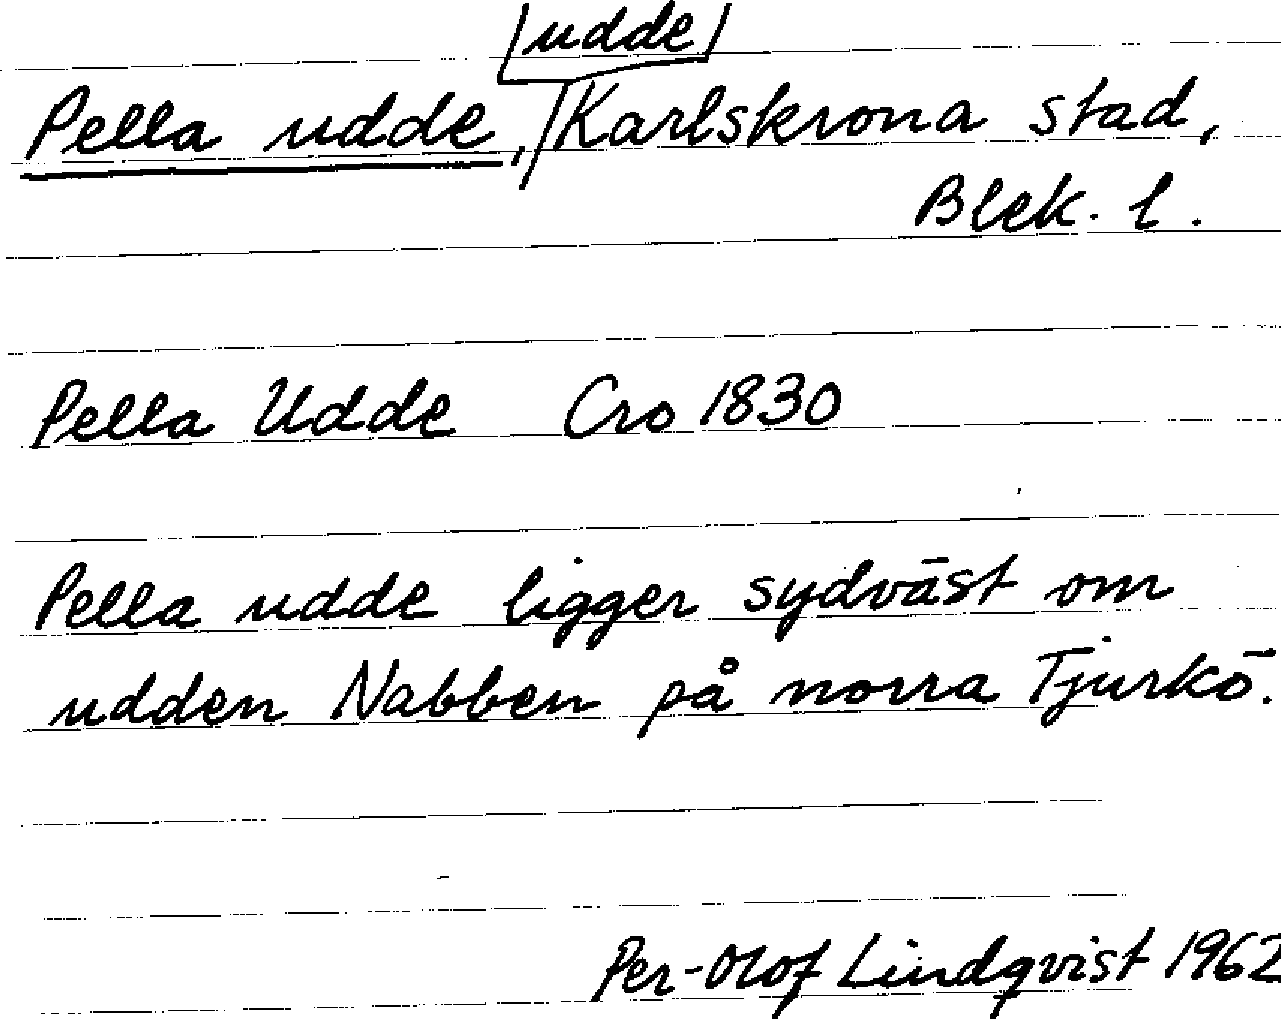 udde
Pella udde, Karlskrona stad,
Blek. l.
Pella Udde Cro 1830
Pella udde ligger sydväst om
udden Nabben på norra Tjurkö.
Per-Olof Lindqvist 1962